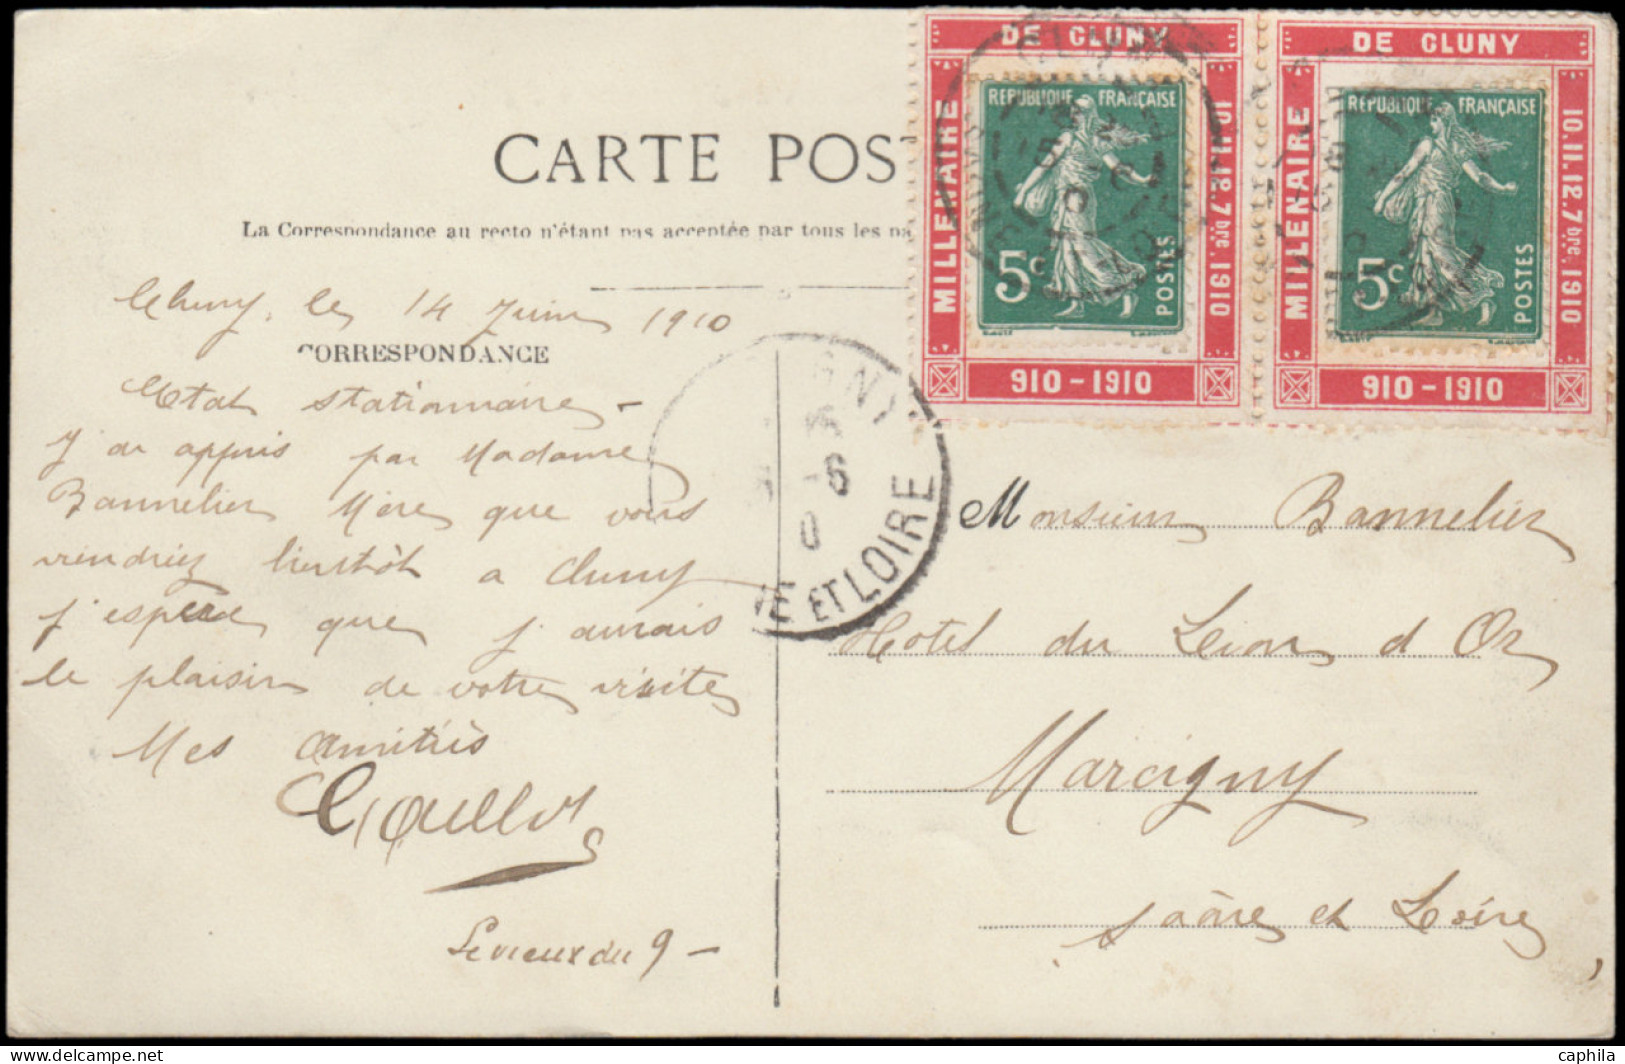 CARTE POST
La Correspondance au recto n'étant pas acceptée par tous les pa
Cluny, le 14 Juin 1910
CORRESPONDANCE
Etat stationnaire -
J'ai appris par Madame
Bannelier Mère que vous
viendriez bientôt a Cluny
J'espère que j'aurais
le plaisir de votre visite
Mes amitiés
Le vieux du 9 -
DE CLUNY
MILLENAIRE
REPUBLIQUE FRANÇAISE
5c
POSTES
10.11.12.7bre.1910
910-1910
DE CLUNY
MILLENAIRE
REPUBLIQUE FRANÇAISE
5c
POSTES
10.11.12.7bre.1910
910-1910
GNY
-6
0
NE ET LOIRE
Monsieur Bannelier
Hotel du Lion d Or
Marcigny
Saône et Loire
© delcampe.net
cercle-phila